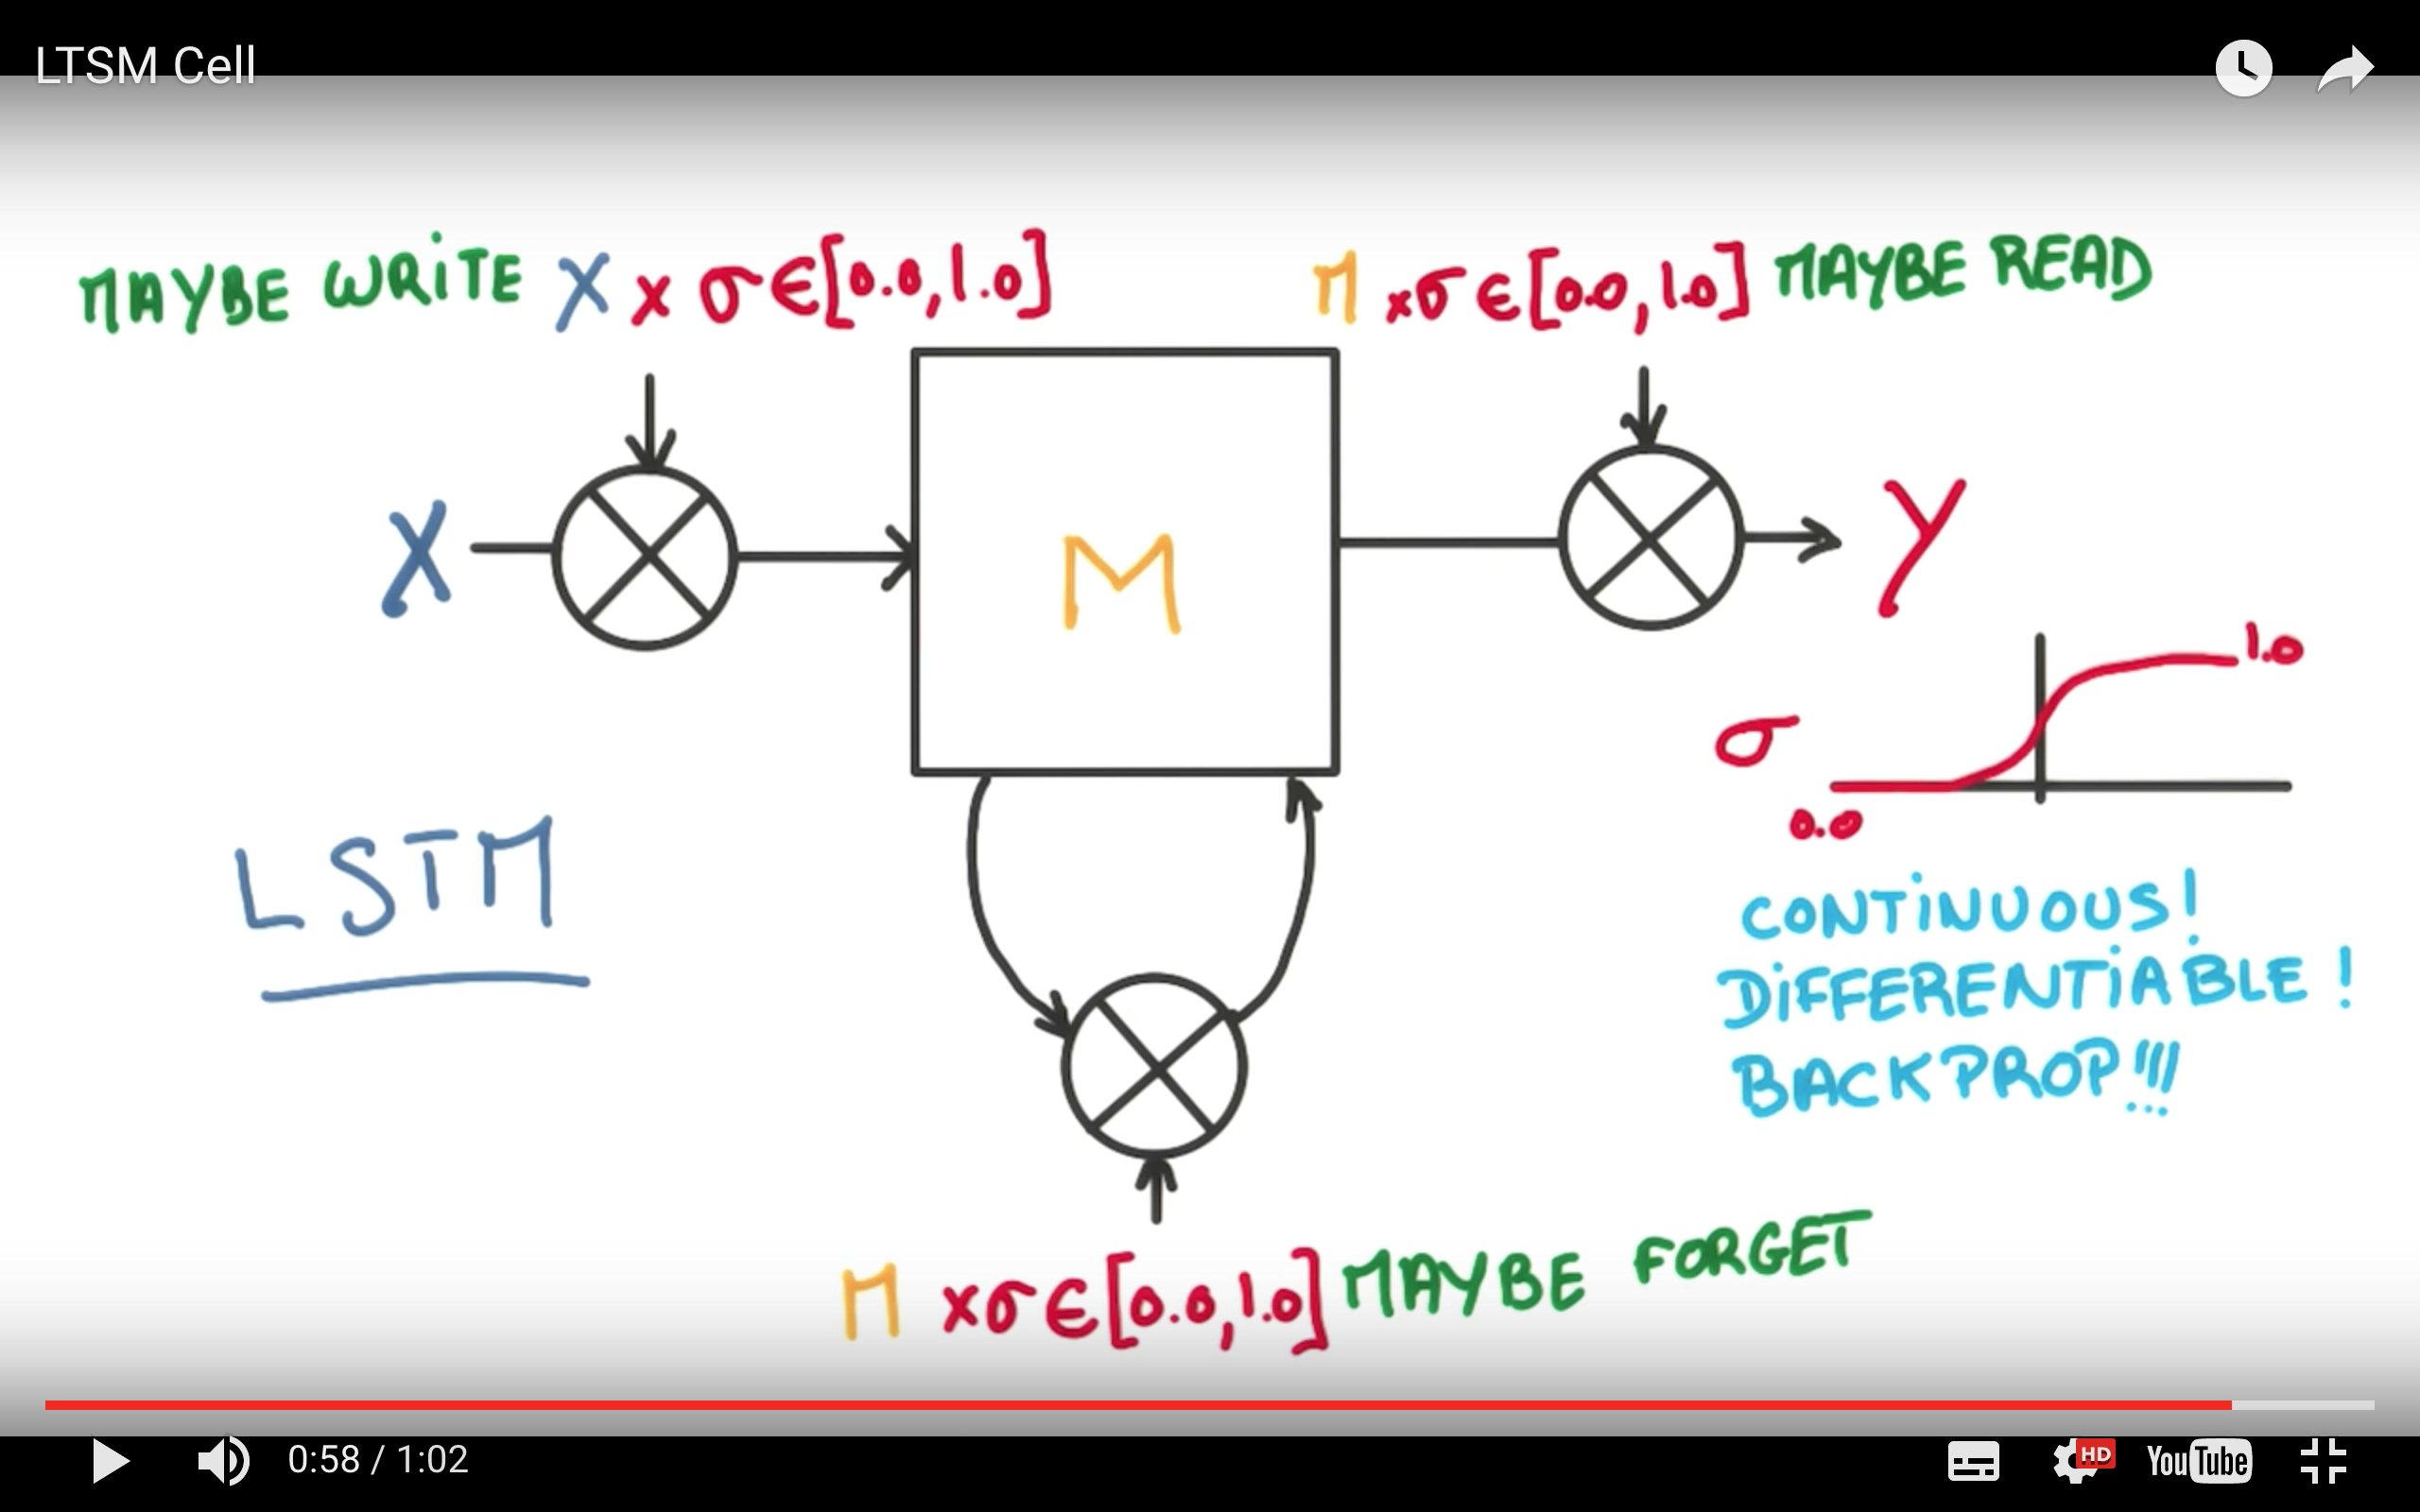 LTSM Cell
MAYBE WRITE X x σ∈[0.0,1.0]
M xσ∈[0.0,1.0] MAYBE READ
X
M
Y
1.0
σ
0.0
LSTM
CONTINUOUS!
DIFFERENTIABLE!
BACKPROP!!!
M xσ∈[0.0,1.0] MAYBE FORGET
0:58 / 1:02
HD
YouTube